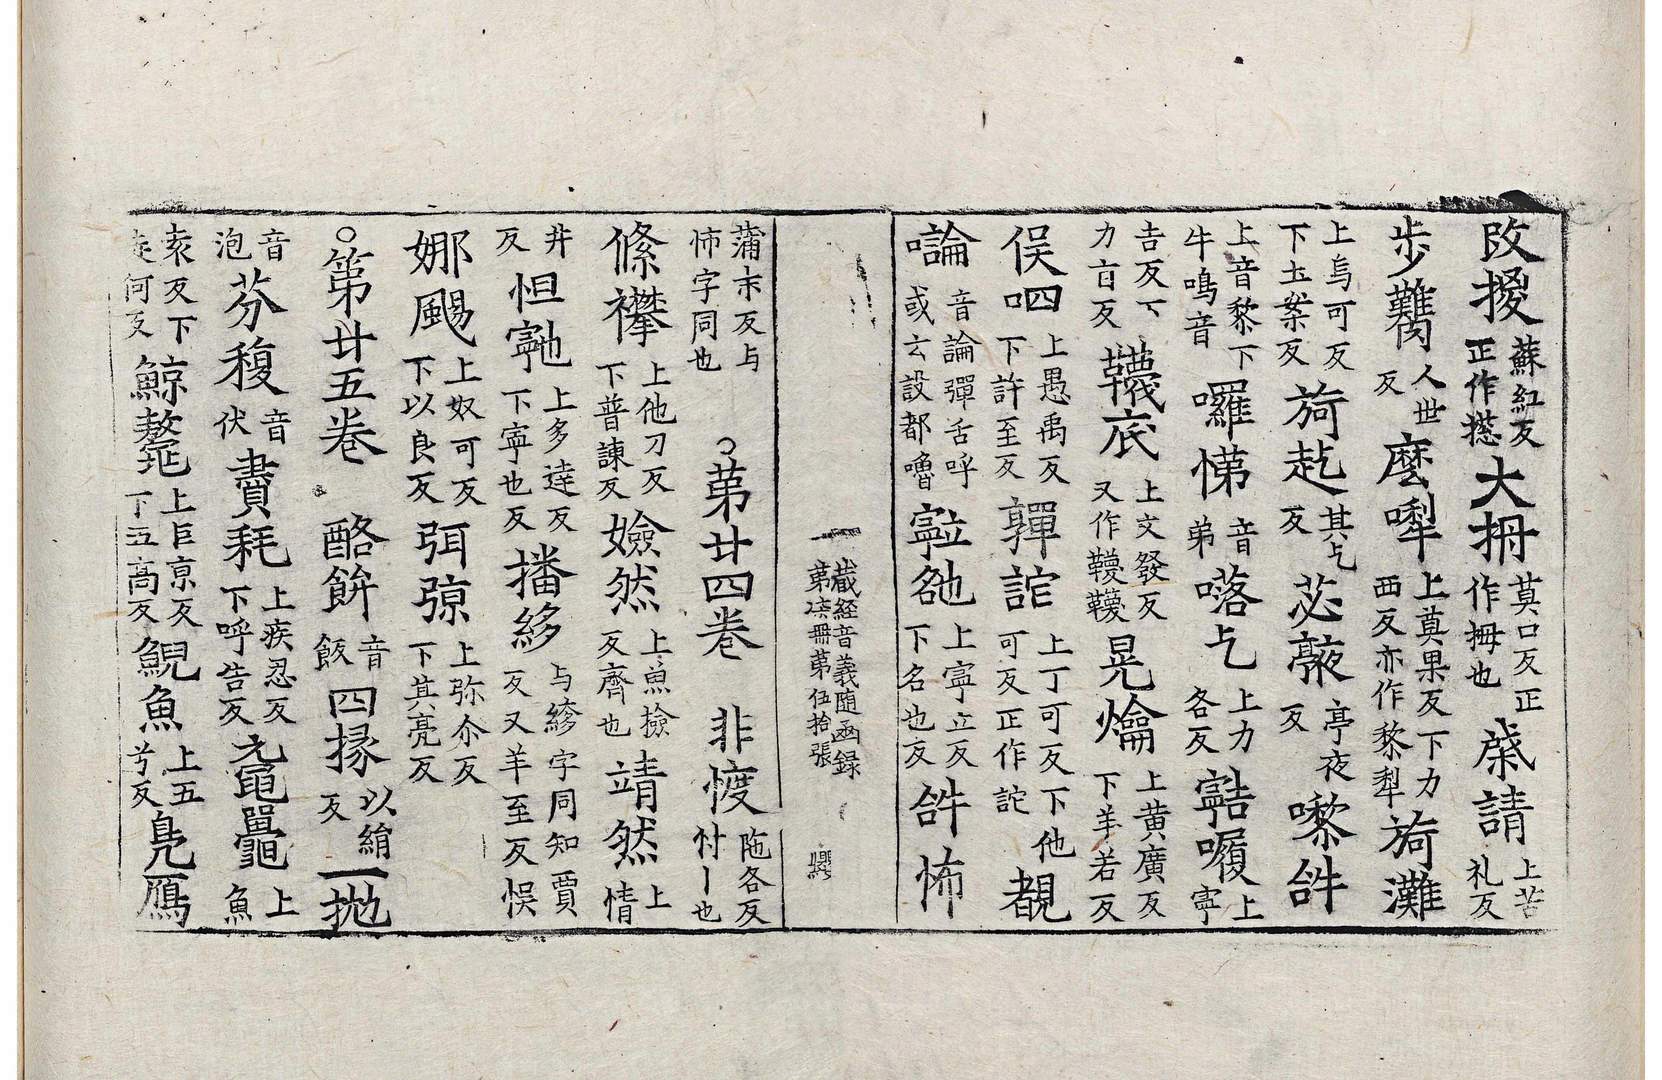 改㨶蘇紅反正作揔大拇莫口反正作拇也㡭請上苦礼反
步䕼人世反麼㗚上莫果反下力西反亦作黎犁㫊灘
上烏可反下𡈽案反㫊赼其乞反苾㰅亭夜反嚟𧦝
上音黎下牛鳴音囉悌音弟㗉乞上力各反𡫸㘑上寧
吉反下力盲反韈底上文發反又作韤韈晃爚上黄廣反下羊若反
俣呬上愚禹反下許至反䪜詑上丁可反下他可反正作詑覩
㘔音論彈舌呼或云設都嚕𡫸䶵上寧立反下名也反𧦝怖
藏經音義随函録第柒冊第伍拾張
蒲末反与怖字同也○第廿四卷非㦜陁各反忖丨也
絛襻上他刀反下普諫反嬐然上魚檢反齊也靖然上情
井反怛𡫸上多達反下寧也反播𢊁与𢊁字同知賈反又羊至反悮
娜颺上奴可反下以良反弭弶上弥尒反下其亮反
○第廿五卷酪䴵音飯四掾以絹反一抛
音泡芬馥音伏賮耗上疾忍反下呼告反黿鼉上魚
袁反下徒何反鯨鼇上巨京反下五高反鯢魚上五兮反鳧鴈